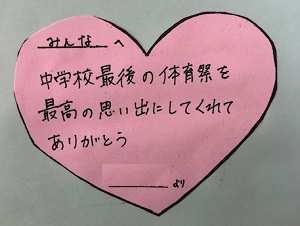 みんな へ
中学校最後の体育祭を
最高の思い出にしてくれて
ありがとう
より